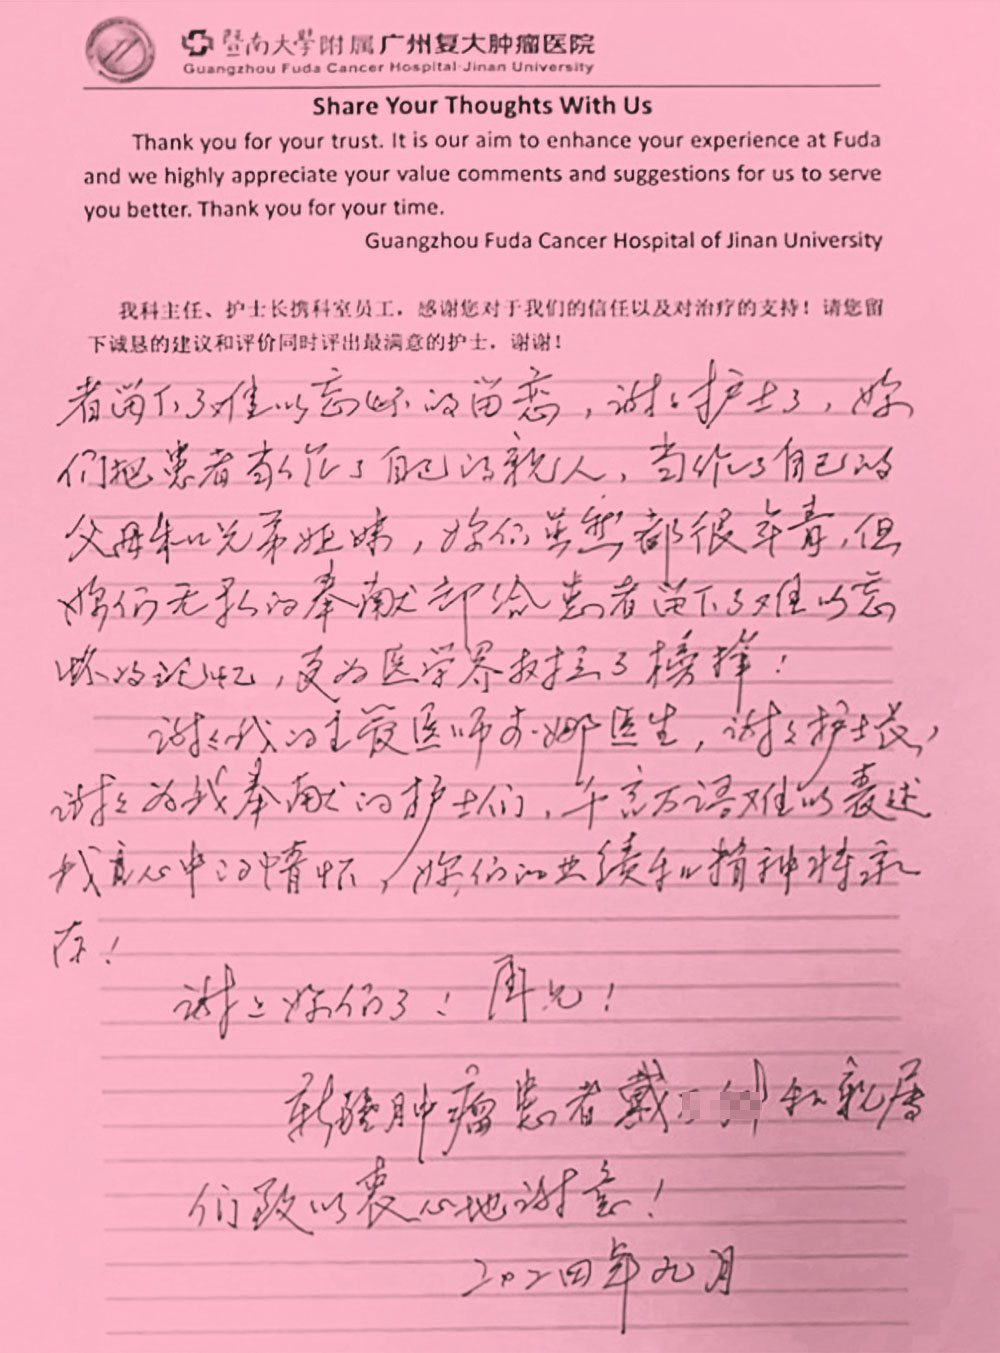 暨南大學附属广州复大肿瘤医院
Guangzhou Fuda Cancer Hospital·Jinan University
Share Your Thoughts With Us
Thank you for your trust. It is our aim to enhance your experience at Fuda
and we highly appreciate your value comments and suggestions for us to serve
you better. Thank you for your time.
Guangzhou Fuda Cancer Hospital of Jinan University
我科主任、护士长携科室员工，感谢您对于我们的信任以及对治疗的支持！请您留
下诚恳的建议和评价同时评出最满意的护士，谢谢！
者留下了难以忘怀的留恋，谢谢护士了，妳
们把患者当作了自己的亲人，当作了自己的
父母和兄弟姐妹，妳们虽然都很年青，但
妳们无私的奉献却给患者留下了难以忘
怀的记忆，更为医学界树立了榜样！
谢谢我的主管医师李娜医生，谢谢护士长，
谢谢为我奉献的护士们，千言万语难以表述
我真心中的情怀，妳们的业绩和精神将永
存！
谢谢妳们了！再见！
新疆肿瘤患者戴 和亲属
们致以衷心地谢意！
二0二四年九月